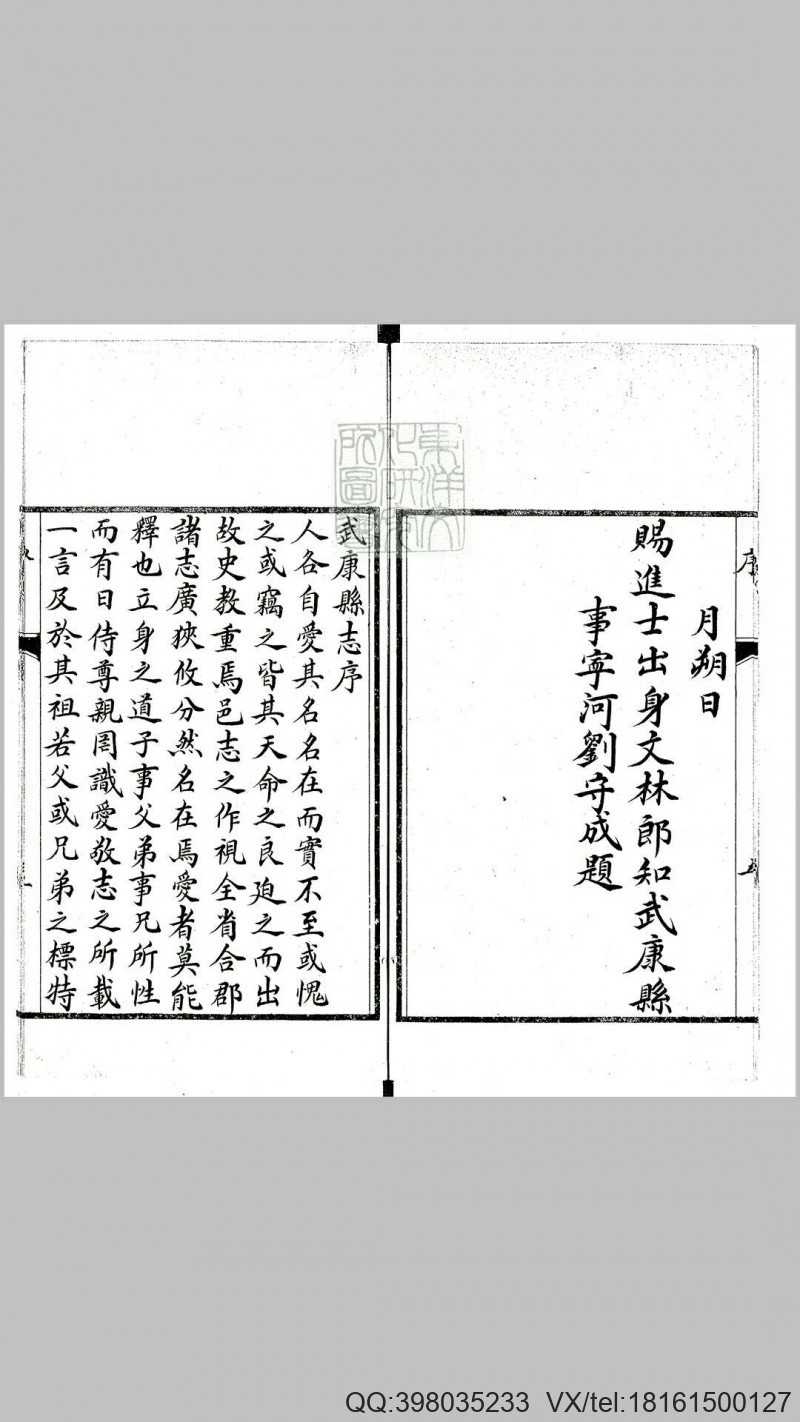 序
月朔日
賜進士出身文林郎知武康縣
事寧河劉守成題
五
武康縣志序
人各自愛其名名在而實不至或愧
之或竊之皆其天命之良迫之而出
故史教重焉邑志之作視全省合郡
諸志廣狹攸分然名在焉愛者莫能
釋也立身之道子事父弟事兄所性
而有日侍尊親罔識愛敬志之所載
一言及於其祖若父或兄弟之標特
東洋文
化研究
所圖
QQ:398035233 VX/tel:18161500127